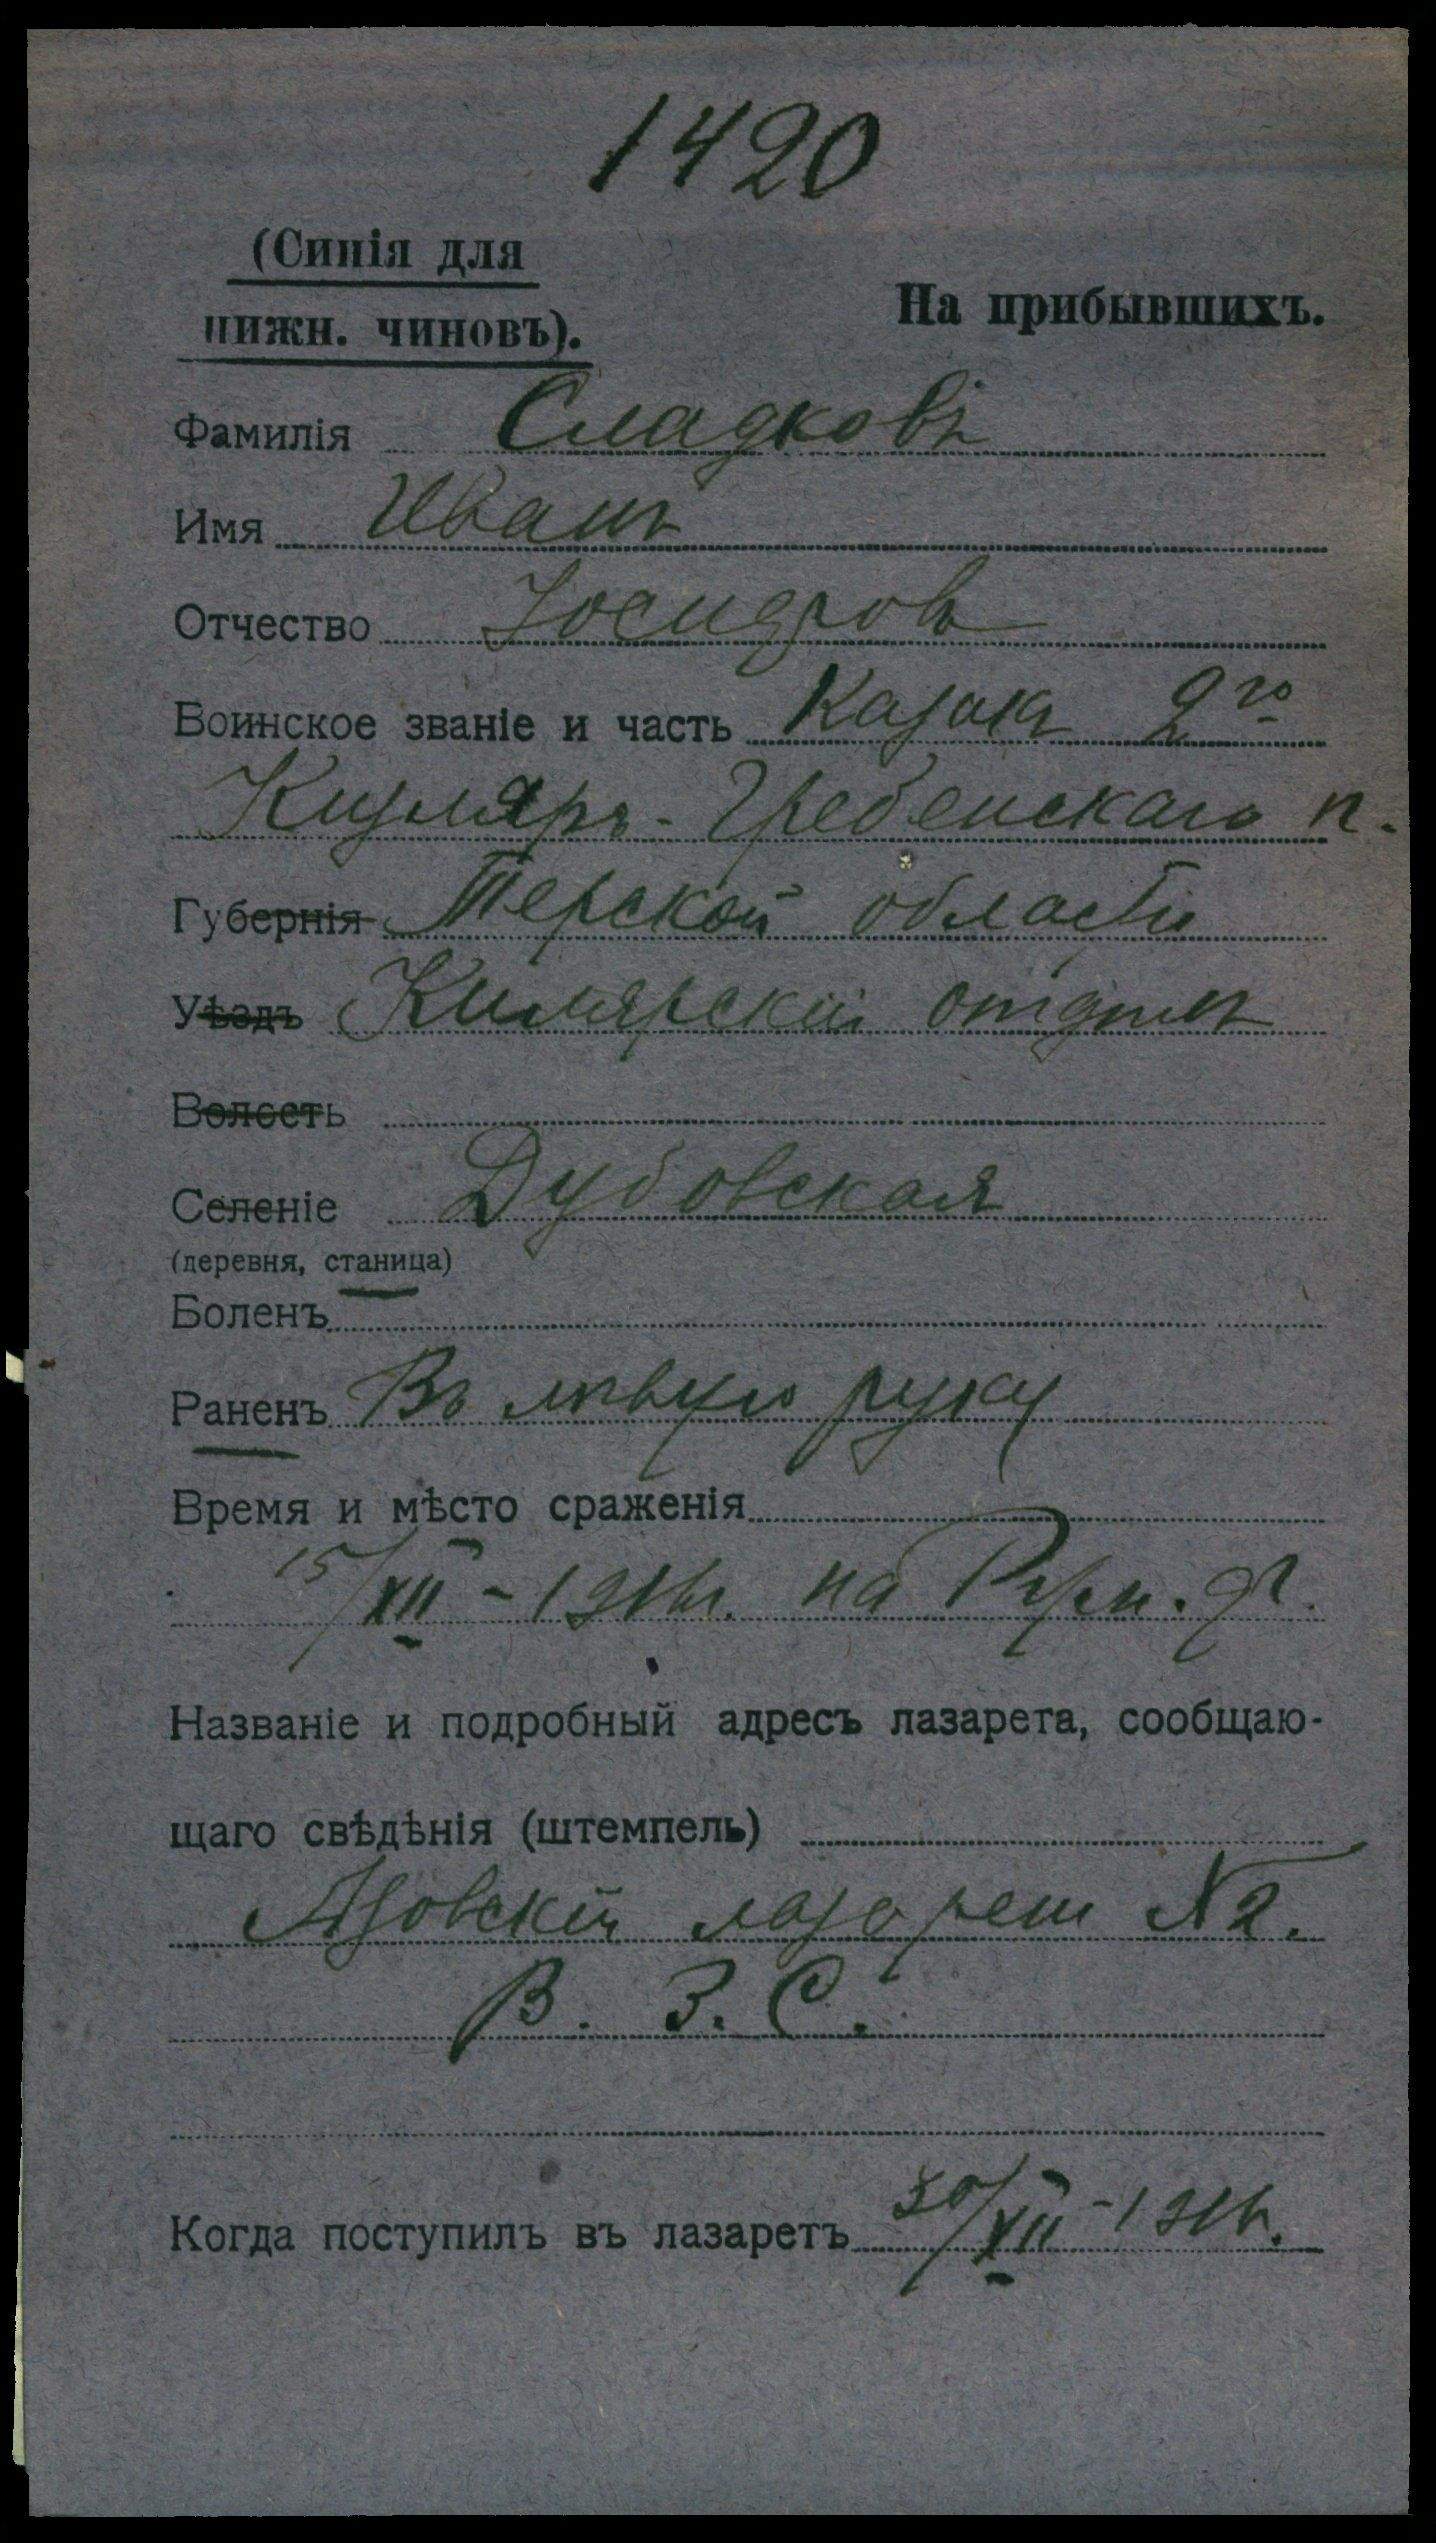 1420
(Синія для
нижн. чиновъ).
На прибывшихъ.
Фамилія Сладковъ
Имя Иванъ
Отчество
Воинское званіе и часть Казакъ 2го
Кизляро-Гребенскаго п.
Губернія Терской области
Уѣздъ Кизлярскій отдѣлъ
Волость
Селеніе Дубовская
(деревня, станица)
Боленъ
Раненъ Въ лѣвую руку
Время и мѣсто сраженія
15/XII - 1916г. на Рум. ф.
Названіе и подробный адресъ лазарета, сообщаю-
щаго свѣдѣнія (штемпель)
Азовскій лазаретъ №2.
В. З. С.
Когда поступилъ въ лазаретъ 30/XII - 1916.